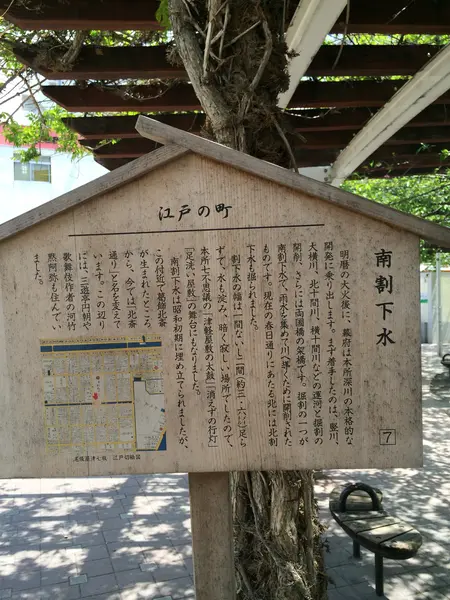 江戸の町
南割下水
7
明暦の大火後に、幕府は本所深川の本格的な
開発に乗り出します。まず着手したのは、竪川、
大横川、北十間川、横十間川などの運河と掘割の
開削、さらには両国橋の架橋です。掘割の一つが
南割下水で、雨水を集めて川へ導くために開削された
ものです。現在の春日通りにあたる北には北割
下水も掘られました。
割下水の幅は一間ないし二間(約三・六㍍)足ら
ずで、水も淀み、暗く寂しい場所でしたので、
本所七不思議の「津軽屋敷の太鼓」「消えずの行灯」
「足洗い屋敷」の舞台にもなりました。
南割下水は昭和初期に埋め立てられましたが、
この付近で葛飾北斎
が生まれたところ
から、今では「北斎
通り」と名を変えて
います。この辺り
には、三遊亭円朝や
歌舞伎作者の河竹
黙阿弥も住んでい
ました。
尾張屋清七板 江戸切絵図